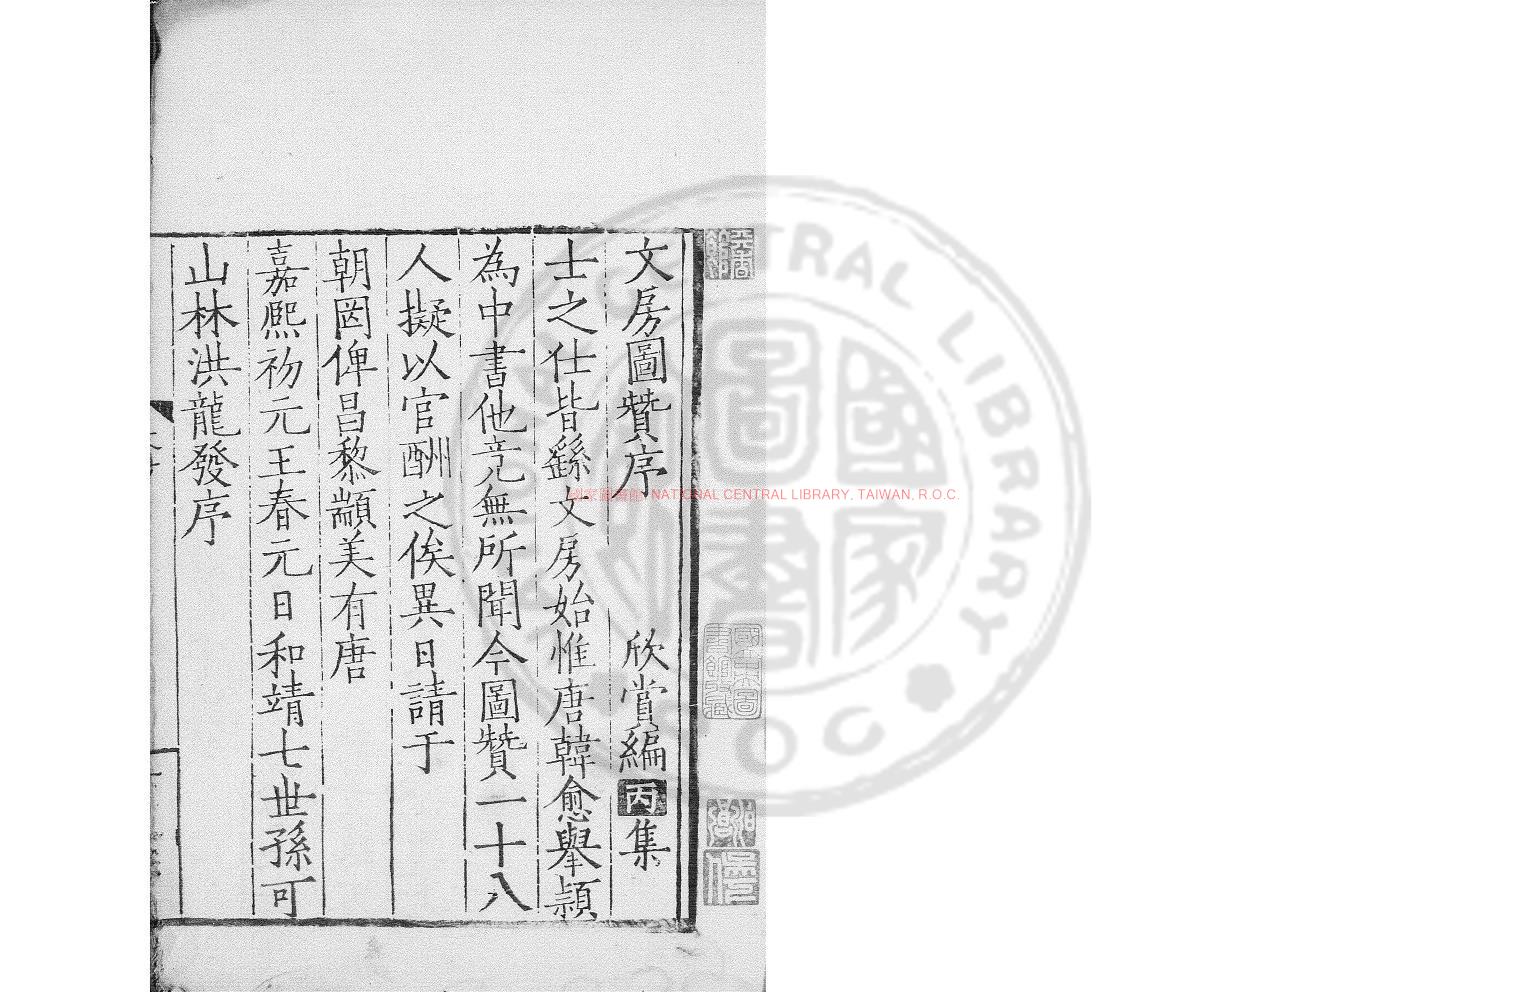 文房圖贊序 欣賞編丙集
士之仕皆繇文房始惟唐韓愈舉穎
為中書他竟無所聞今圖贊一十八
人擬以官酬之俟異日請于
朝罔俾昌黎顓美有唐
嘉熙初元王春元日和靖七世孫可
山林洪龍發序
國家圖書館 NATIONAL CENTRAL LIBRARY, TAIWAN, R.O.C.